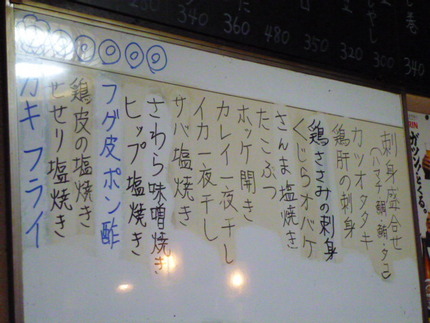 刺身盛合せ
(ハマチ・鯛・鮪・タコ)
カツオタタキ
鶏肝の刺身
鶏ささみの刺身
くじらオバケ
さんま塩焼き
たこぶつ
ホッケ開き
カレイ一夜干し
イカ一夜干し
サバ塩焼き
さわら味噌焼き
ヒップ塩焼き
フグ皮ポン酢
鶏皮の塩焼き
せせり塩焼き
カキフライ
340
360
480
350
320
300
340